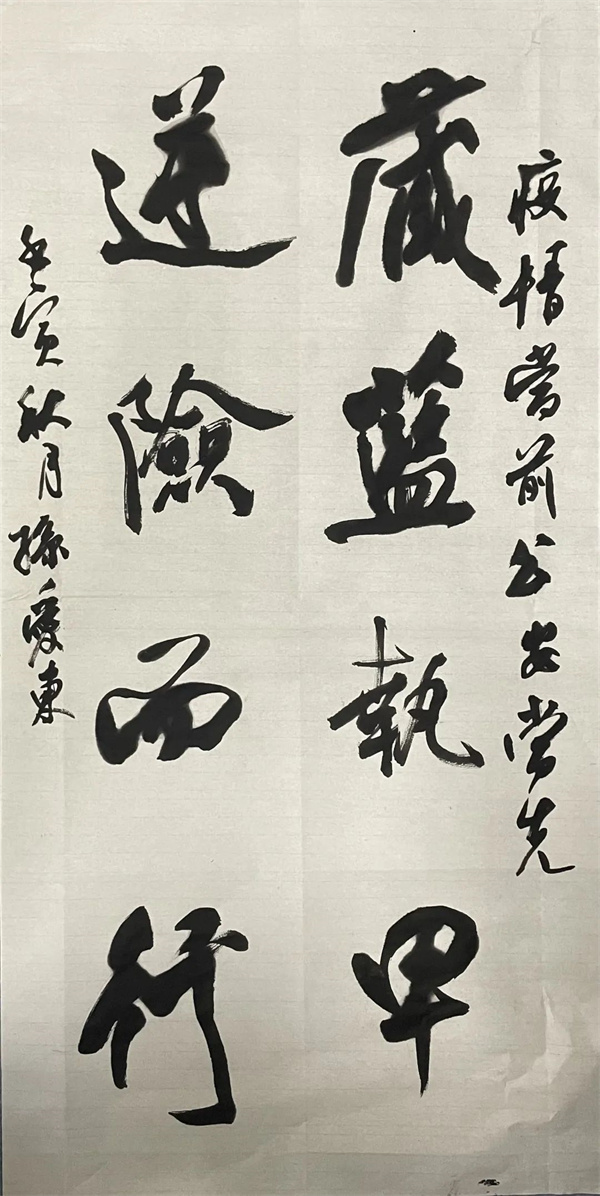 疫情當前公安當先
藏藍執甲
逆險而行
壬寅秋月孫愛東